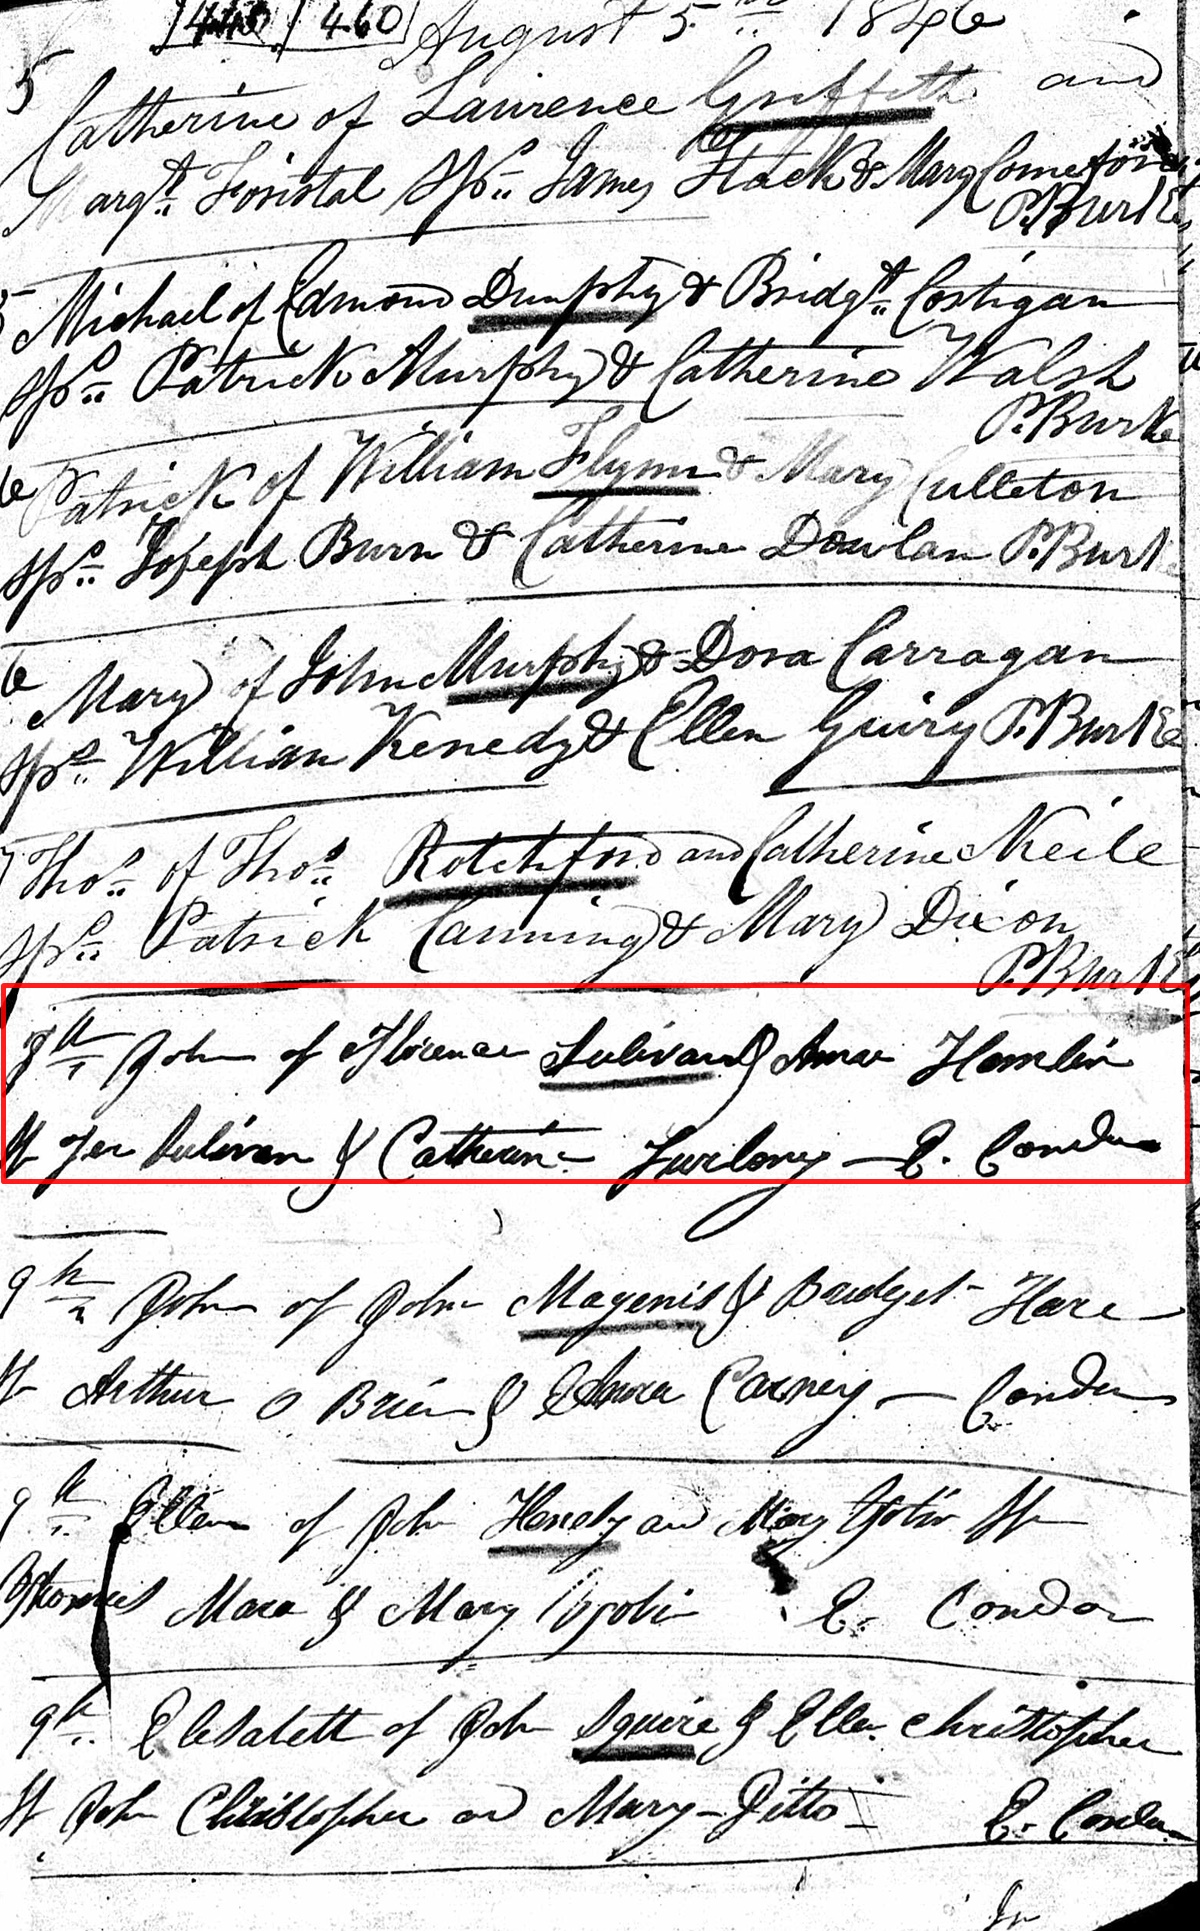 440 460 August 5th 1846
5 Catherine of Laurence Griffith and
Margt Foristal Sprs James Stack & Mary Comerford
P. Burke
5 Michael of Edmond Dunphy & Bridgt Costigan
Sprs Patrick Murphy & Catherine Walsh
P. Burke
6 Patrick of William Flynn & Mary Culleton
Sprs Joseph Burn & Catherine Dowlan P. Burke
6 Mary of John Murphy & Dora Carragan
Sprs William Kenedy & Ellen Guiry P. Burke
7 Thos of Thos Rotchford and Catherine Neile
Sprs Patrick Canning & Mary Dixon
P. Burke
8th John of Florence Sulivan & Anne Hamlin
Sp Jer Sulivan & Catherine Furlong — E. Condon
9th John of John Magenis & Bridget Hare
Sp Arthur O Brien & Anne Carney — Condon
9th Ellen of John Hendy and Mary Sp
Thomas Mara & Mary E. Condon
9th Elesabett of John Squire & Ellen Christopher
Sp John Christopher and Mary Ditto E. Condon